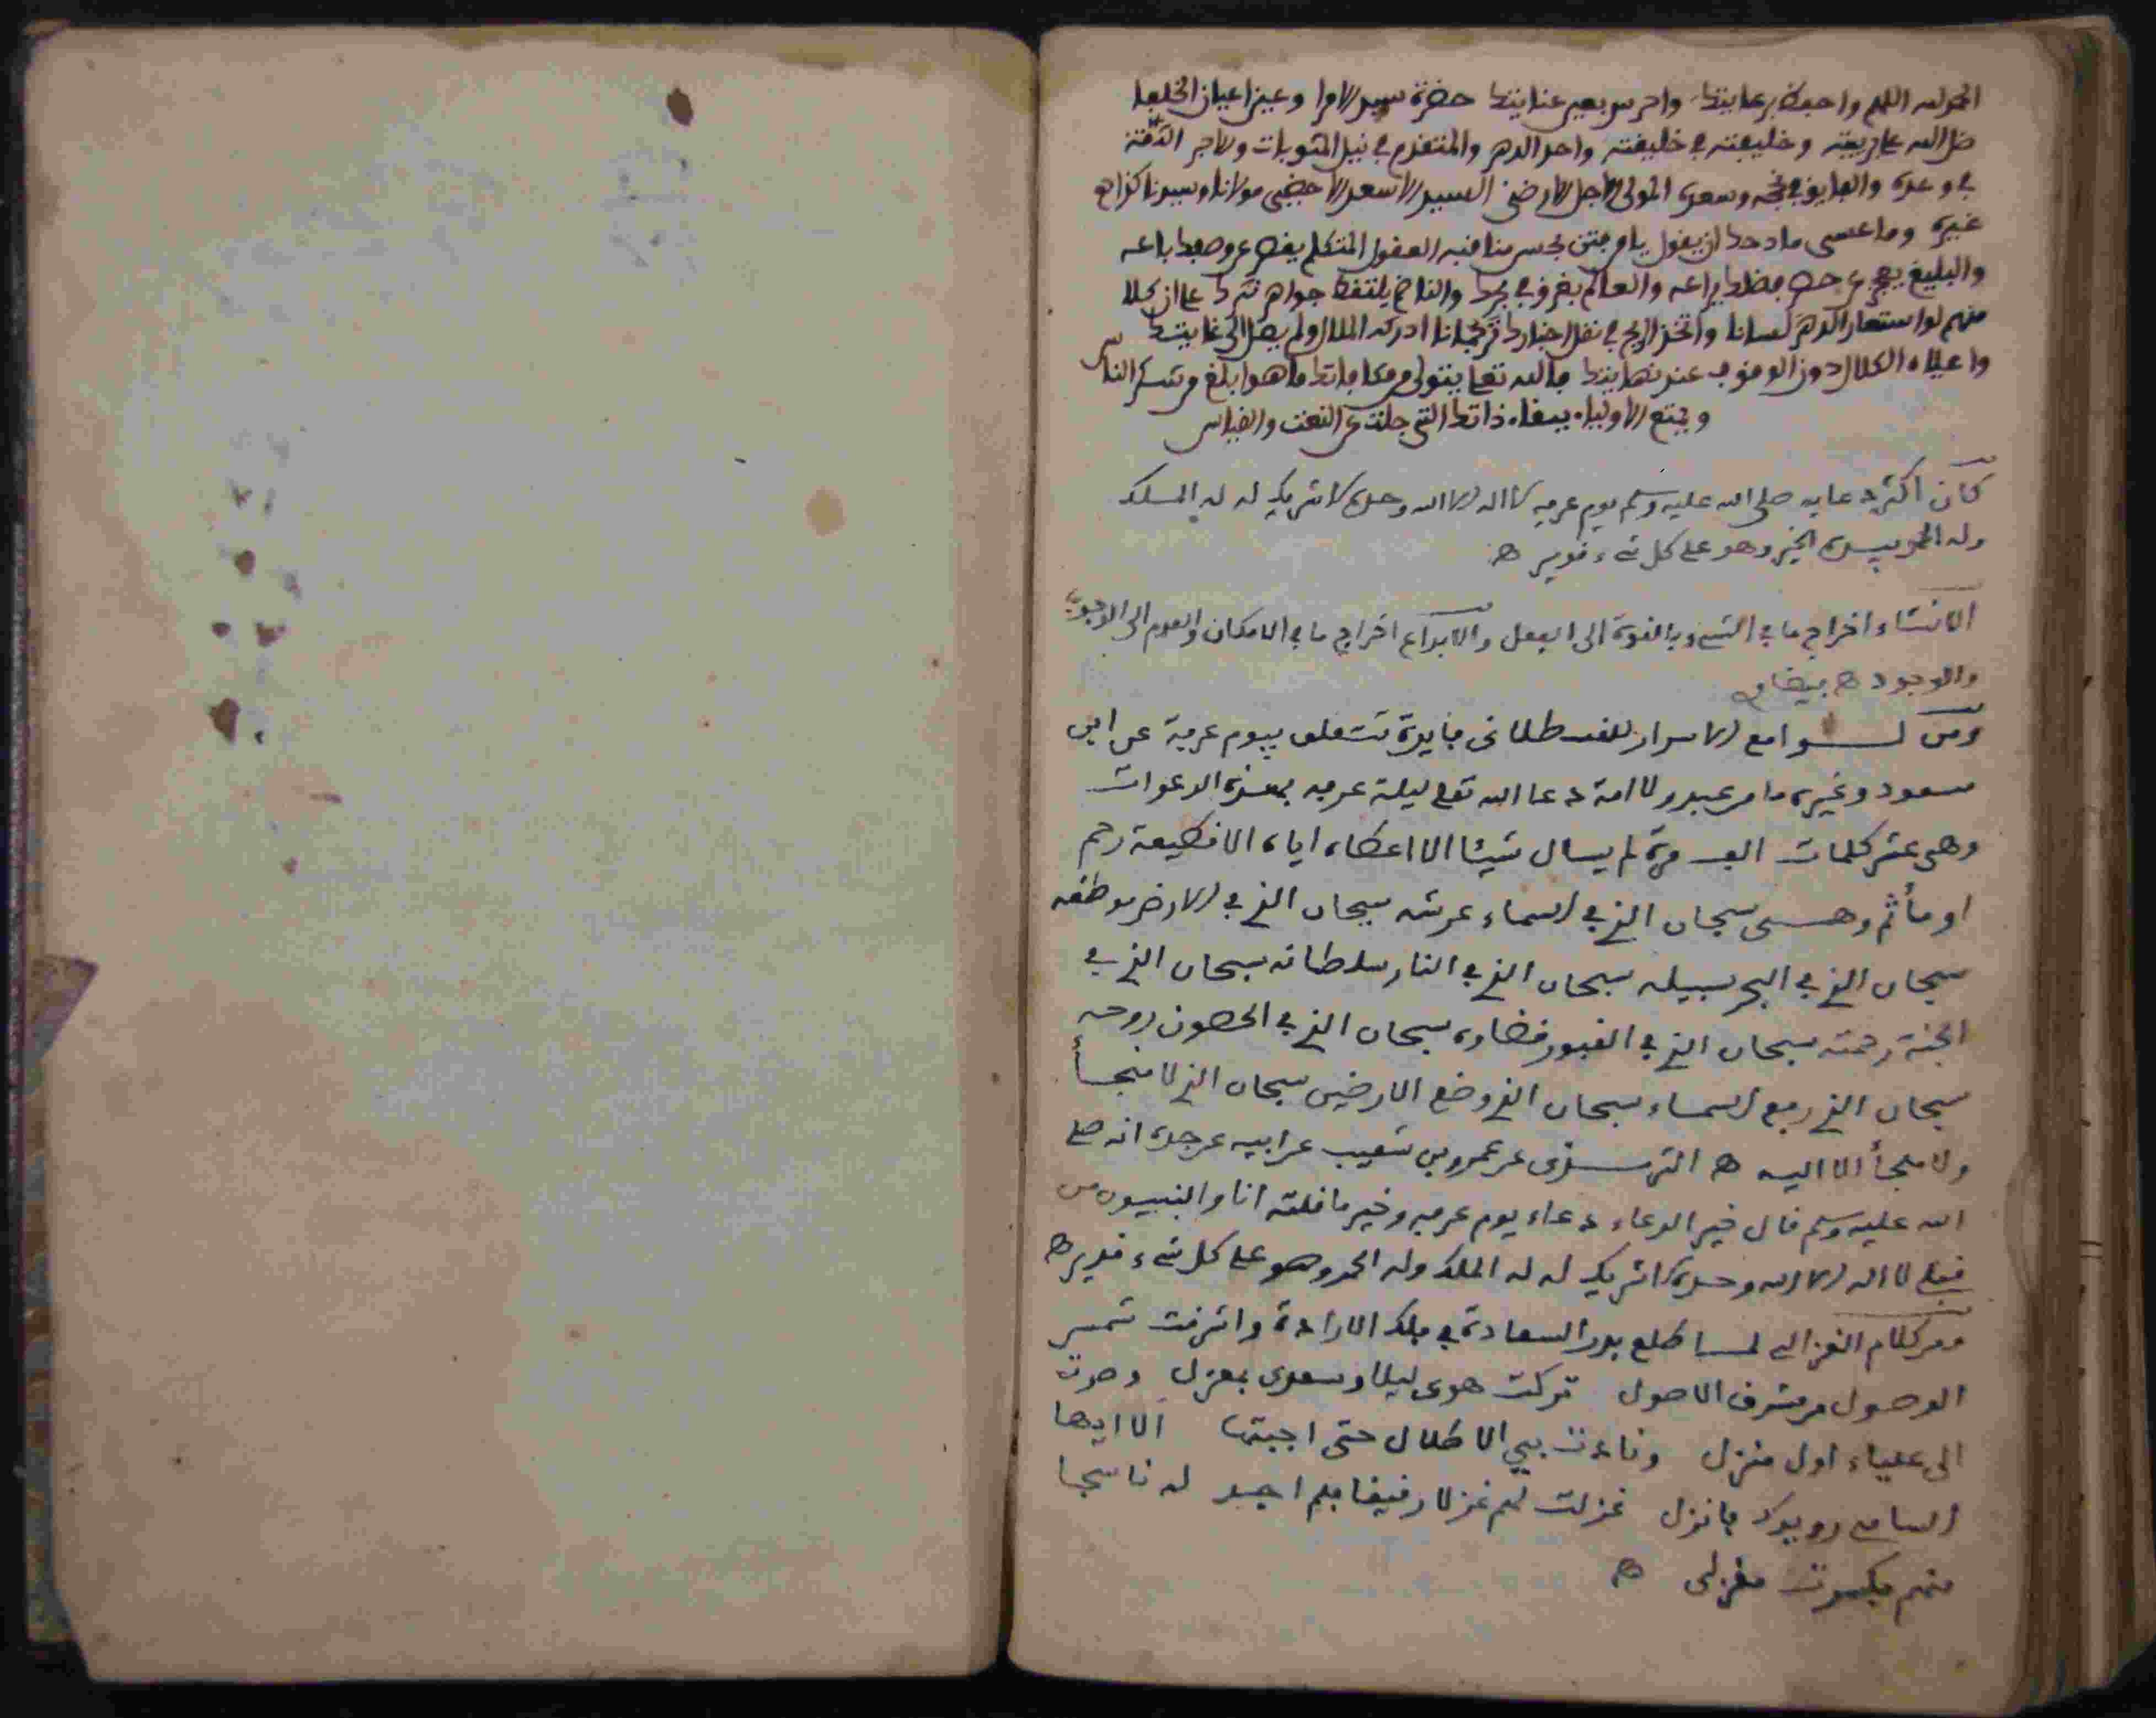 الحمد لله اللهم واحفظ برعايتك واحرس بعين عنايتك حضرة سيد الامرا وعين اعيان الخلفا
ظل الله على بريته وخليفته في خليقته واحد الدهر والمتقدم في نيل المثوبات والاجر
في وعده والفايز في نجحه وسعده المولى الاجل الارضى السيد الاسعد الاحضى مولانا وسيدنا كذا
غيره وما عسى مادحك ان يقول يا من جنن بحسن مناقبه العقول المتكلم يقصر عن وصفك باعه
والبليغ يعجز عن حصر فضلك يراعه والعالم يغرف في بحرك والناظم يلتقط جواهر نثرك على ان كلا
منهم لو استعار الدهر لسانا واتخذ الريح في نقل اخبارك ترجمانا ادركه الملال ولم يصل الى غايتك
واعياه الكلال دون الوقوف عند نهايتك فالله تعالى يتولى من مكافاتك ما هو ابلغ من شكر الناس
ويمتع الاولياء ببقاء ذاتك التي جلت عن النعت والقياس
كان اكثر دعايه صلى الله عليه وسلم يوم عرفه لا اله الا الله وحده لا شريك له له الملك
وله الحمد بيده الخير وهو على كل شيء قدير ه
الانشاء اخراج ما في الشيء بالقوة الى الفعل والابداع اخراج ما في الامكان والعدم الى الوجوب
والوجود ه
ومن لوامع الاسرار للقسطلاني فايدة تتعلق بيوم عرفة عن ابي
مسعود وغيره ما من عبد ولا امة دعا الله تعلى ليلة عرفه بهذه الدعوات
وهي عشر كلمات الف مرة لم يسال شيئا الا اعطاه اياه الا قطيعة رحم
او مأثم وهي سبحان الذي في السماء عرشه سبحان الذي في الارض موطئه
سبحان الذي في البحر سبيله سبحان الذي في النار سلطانه سبحان الذي في
الجنة رحمته سبحان الذي في القبور قضاوه سبحان الذي في الحصون روحه
سبحان الذي رفع السماء سبحان الذي وضع الارضين سبحان الذي لا منجأ
ولا ملجأ الا اليه ه الترمذي عن عمرو بن شعيب عن ابيه عن جده انه صلى
الله عليه وسلم قال خير الدعاء دعاء يوم عرفه وخير ما قلته انا والنبيون من
قبلي لا اله الا الله وحده لا شريك له له الملك وله الحمد وهو على كل شيء قدير ه
ومن كلام الغزالي لما طلع بدر السعادة في فلك الارادة واشرقت شمس
الوصول من مشرف الاصول تركت هوى ليلا وسعدى بمعزل وصرت
الى علياء اول منزل ونادت بي الاطلال حتى اجبتها الا ايها
الساري رويدك فانزل غزلت لهم غزلا رقيقا فلم اجد له ناسجا
منهم فكسرت مغزلي ه